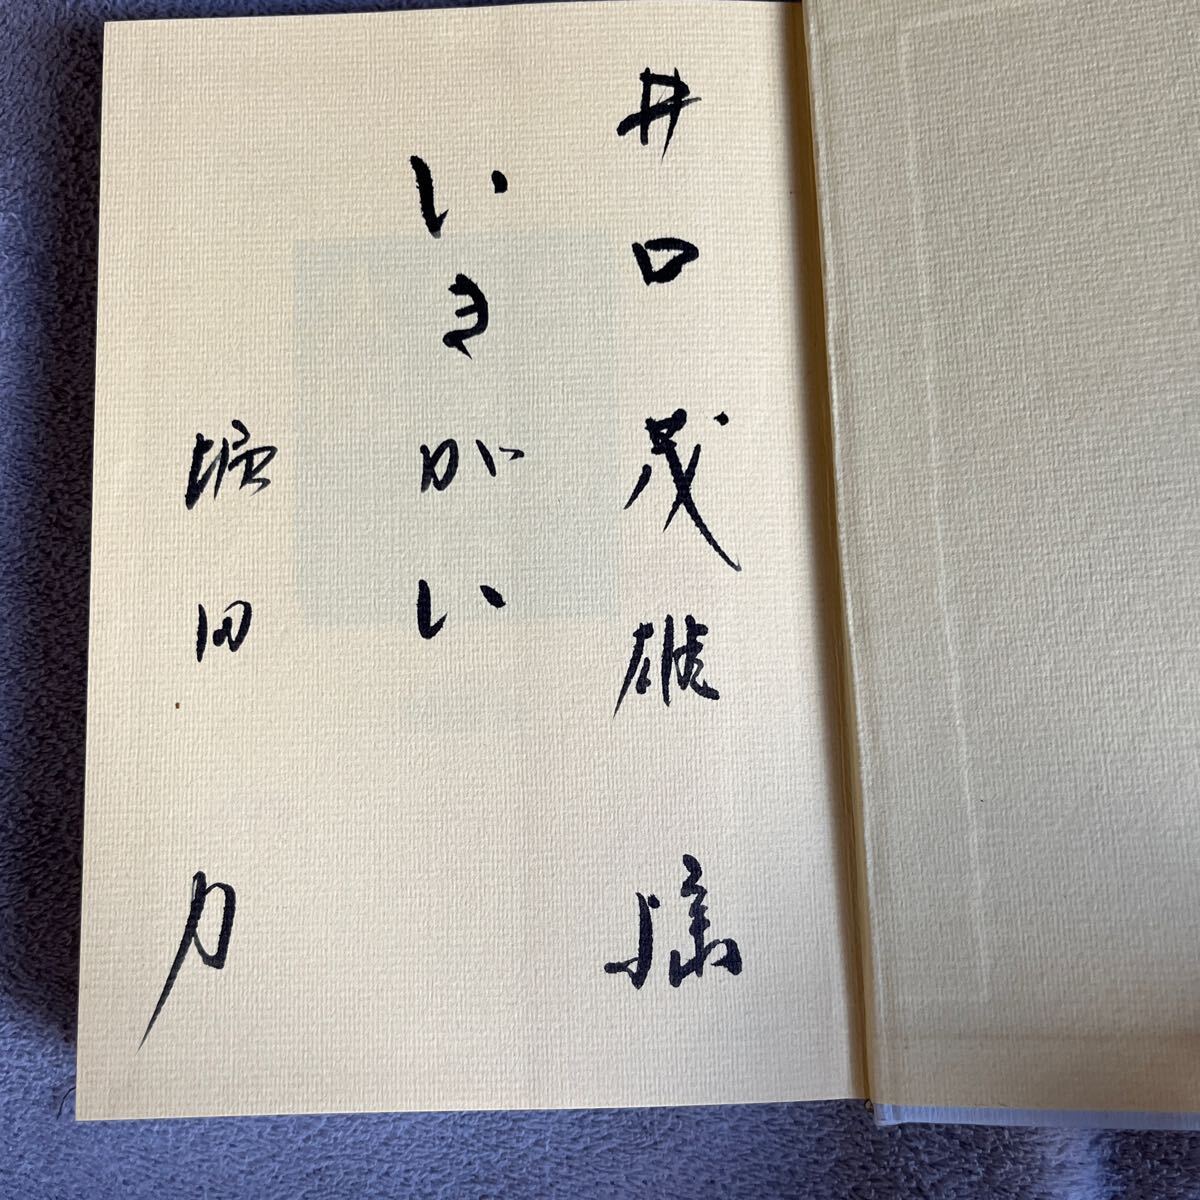 井口茂雄様
いきがい
堀田力